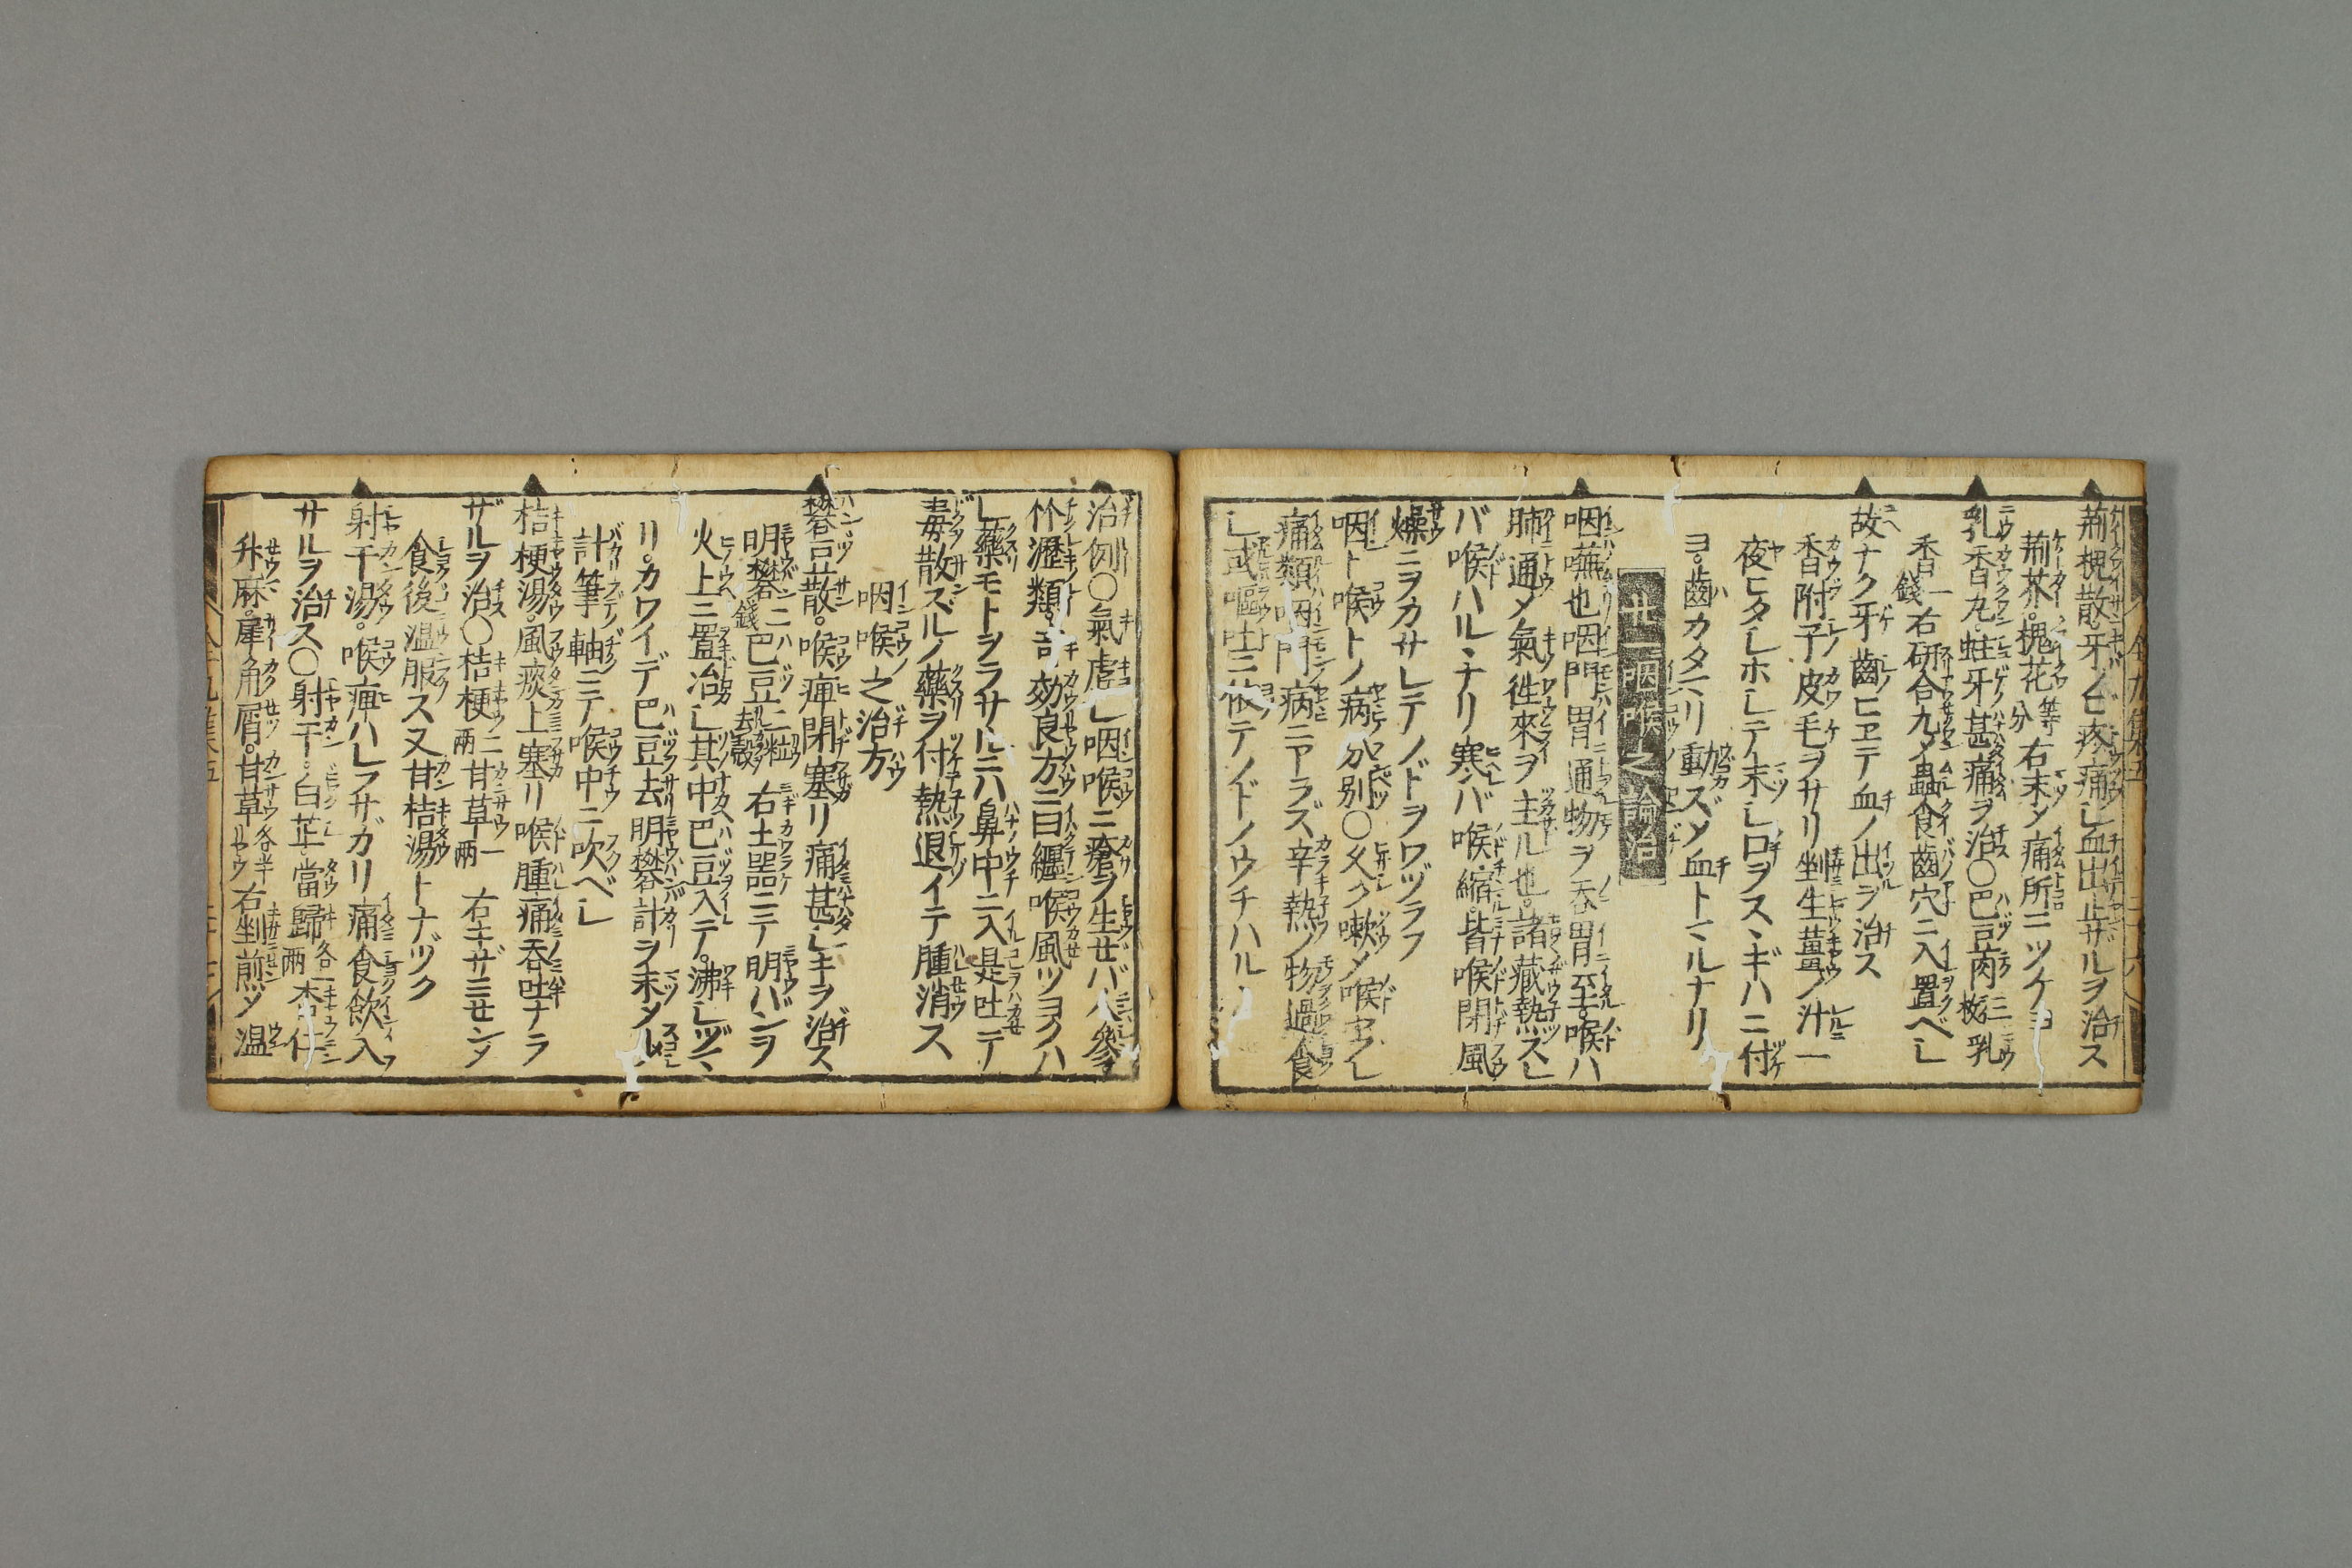 荊槐散牙ノ匕疼痛乚血出止ザルヲ治ス
荊芥。槐花等分右末〆痛所ニツケヨ
乳香丸。蛀牙甚痛ヲ治〇巴豆肉三枚乳
香一錢右研合丸〆蟲食齒穴ニ入置べシ
故ナク牙齒ヒヱテ血ノ出ヲ治ス
香附子皮毛ヲサリ剉生薑ノ汁一
夜ヒタシホシテ末シ口ヲスヽギハニ付
ヨ。齒カタマリ動ズ〆血トマルナリ
廿一咽喉之論治
咽嚥也咽門胃通物ヲ吞胃至。喉ハ
肺通〆氣徃來ヲ主ル也。諸藏熱スレ
バ喉ハルヽナリ寒バ喉縮。皆喉閉風
燥ニヲカサレテノドヲワヅラフ
咽ト喉トノ病分別〇久ク嗽〆喉
痛類咽門病ニアラズ辛熱ノ物過食
シ或嘔吐ニ依テノドノウチハル
治例〇氣虛シ咽喉ニ瘡ヲ生ゼバ人參
竹瀝類。奇効良方ニ曰纏喉風ツヨクハ
レ藥モトヲラサルニハ鼻中ニ入是吐テ
毒散ズルノ藥ヲ付熱退イテ腫消ス
咽喉之治方
礬豆散。喉痺閉塞リ痛甚シキヲ治ス
明礬二錢巴豆二粒去殼右土器ニテ明バンヲ
火上ニ置冶シ其中巴豆入テ。沸シヅマ
リ。カワイデ巴豆去明礬計ヲ末〆少
計筆軸ニテ喉中ニ吹べシ
桔梗湯。風痰上塞リ喉腫痛吞吐ナラ
ザルヲ治〇桔梗二兩甘草一兩右キザミセン〆
食後温服ス又甘桔湯トナヅク
射干湯。喉痺ハレフサガリ痛食飲入
サルヲ治ス〇射干。白芷。當歸各一兩杏仁
升麻。犀角屑。甘草各半右剉煎〆温